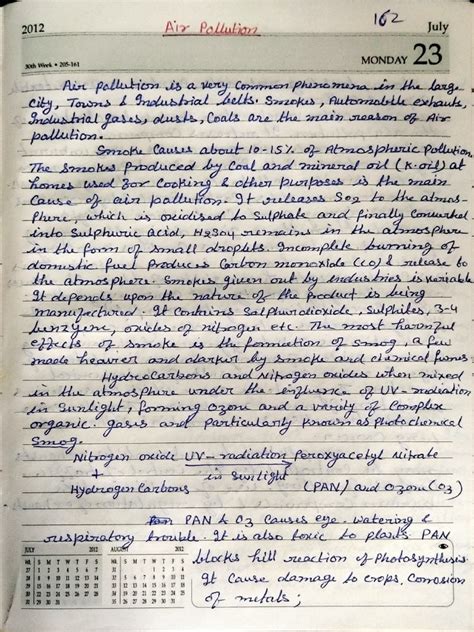 2012 Air Pollution 162 July
30th Week • 205-161 MONDAY 23
Air Pollution is a very Common Phenomena in the large
City, Towns & Industrial belts. Smokes, Automobile exhauts,
Industrial gases, dusts, Coals are the main reason of Air
pollution.
Smoke Causes about 10-15% of Atmospheric Pollution
The Smokes Produced by Coal and mineral oil (K.oil) at
homes used for Cooking & other purposes is the main
Cause of air pollution. It releases SO2 to the atmos-
phere, which is oxidised to Sulphate and finally Converted
into Sulphuric acid, H2SO4 remains in the atmosphere
in the form of small droplets. Incomplete burning of
domestic fuel Produces Carbon monoxide (CO) & release to
the atmosphere. Smokes, given out by industries is variable
It depends upon the nature of the Product is being
manufactured. It Contains Sulphurdioxide, Sulphites, 3-4
benzyene, oxides of nitrogen etc. The most harmful
effects of Smoke is the formation of smog, a few
made heavier and darker by smoke and chemical fumes
HydroCarbons and Nitrogen oxides when mixed
in the atmosphere under the influence of UV-radiation
in Sunlight, forming Ozone and a varity of Complex
organic gases and Particularly Known as Photochemical
Smog.
Nitrogen oxide UV-radiation Peroxyacetyl Nitrate
+ in Sunlight
Hydrogen Carbons (PAN) and Ozone (O3)
PAN & O3 Causes eye watering &
respiratory trouble. It is also toxic to plants. PAN
blocks hill reaction of Photosynthesis
It Cause damage to crops, Corrosion
of metals;
JULY 2012 AUGUST 2012